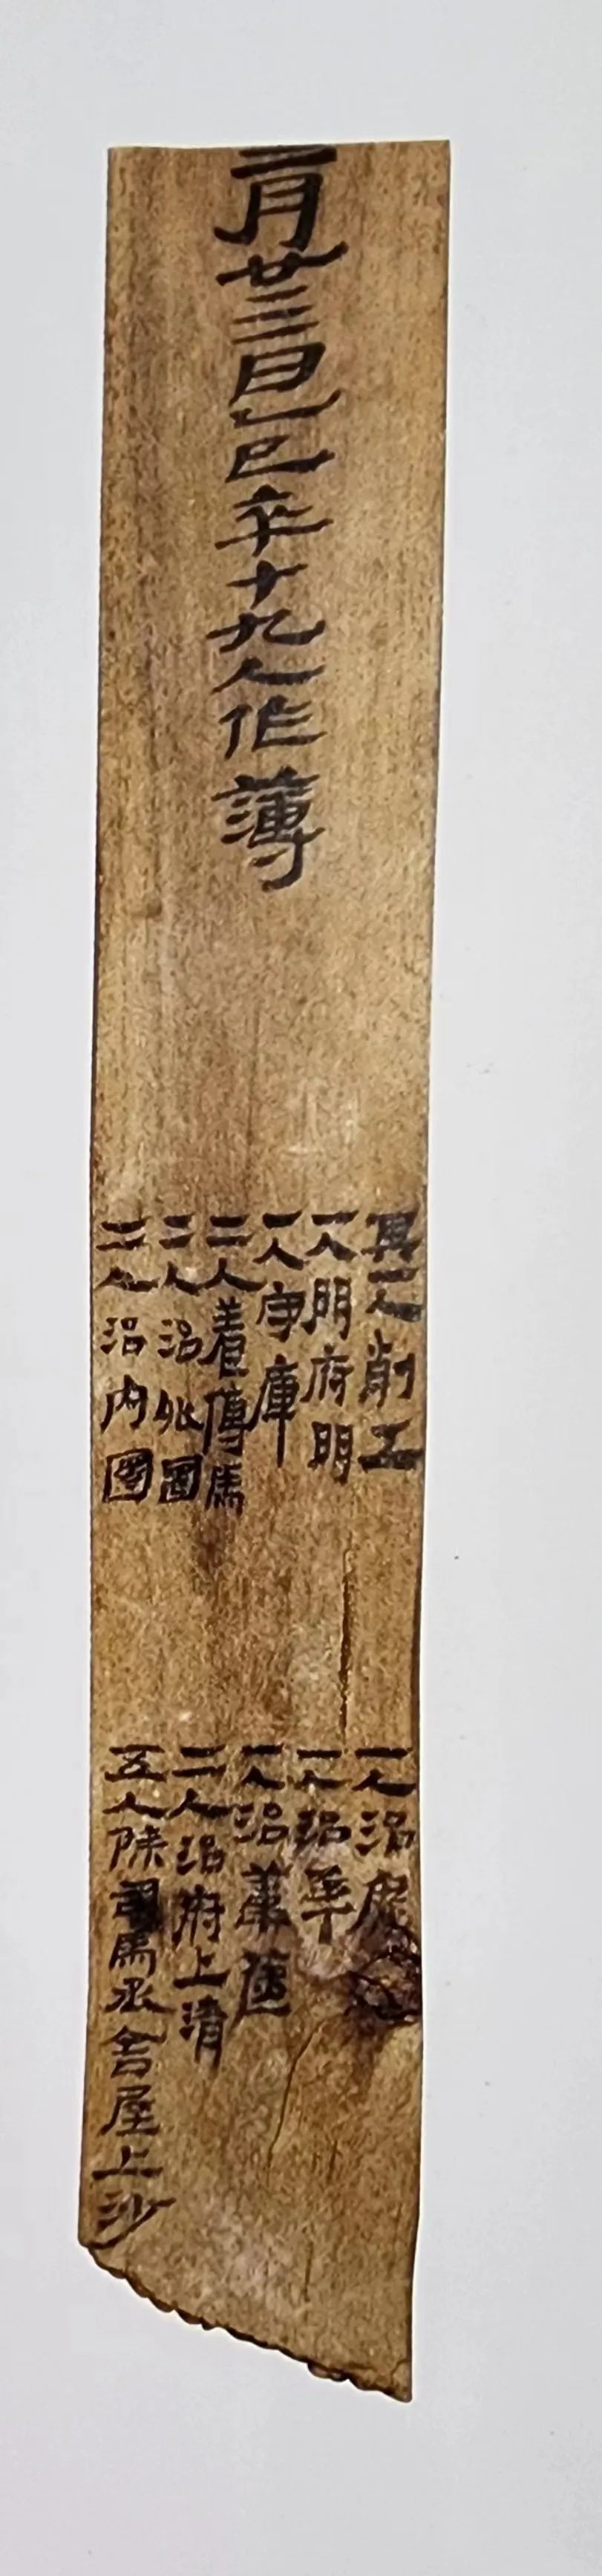 二月廿三日乙巳卒十九人作薄
其一人削工
一人門府門
一人守庫
二人養傳馬
二人治園
二人治內園
一人治
一人治
一人治
二人治府上清
五人除司馬丞舍屋上沙